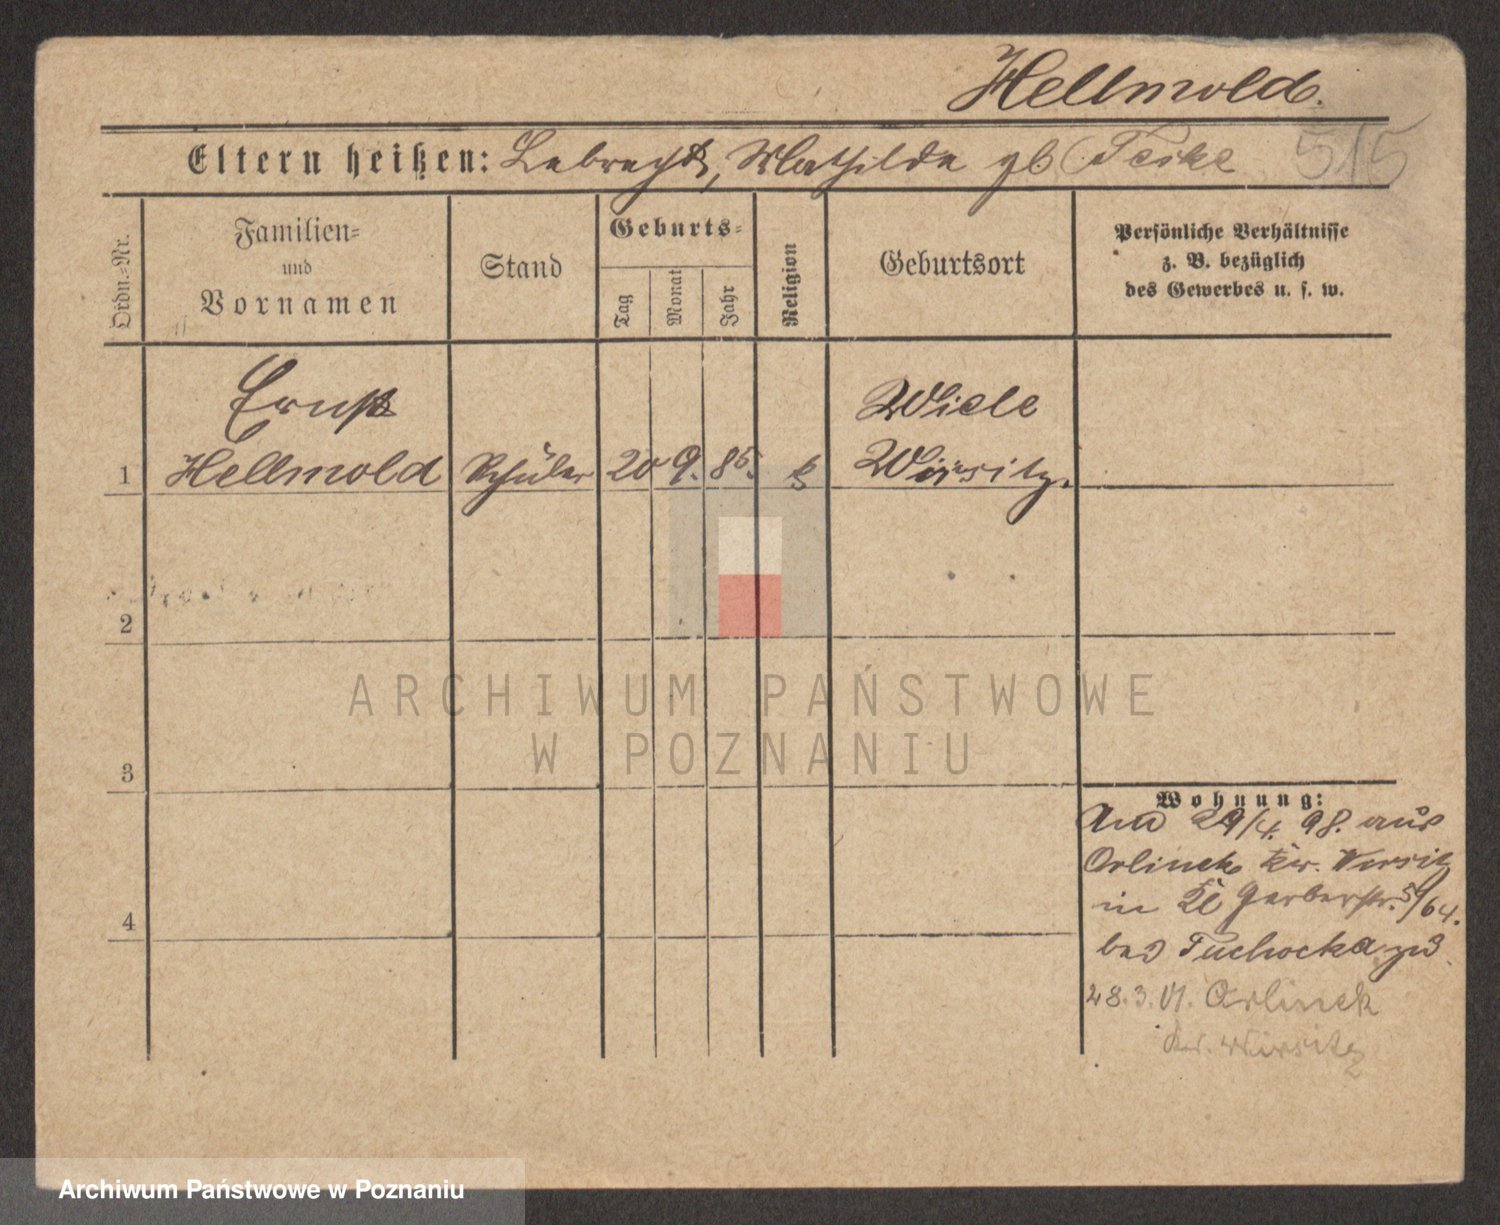 Hellmold.
515
Eltern heißen: Lebrecht, Mathilde gb. Teske
Ordn.-Nr.
Familien-
und
Vornamen
Stand
Geburts-
Tag
Monat
Jahr
Religion
Geburtsort
Persönliche Verhältnisse
z. B. bezüglich
des Gewerbes u. s. w.
Ernst
Wiele
1 Hellmold Schüler 20 9. 85. Wirsitz.
2
3
4
Wohnung:
29/4. 98. aus
Orlinek Kr. Wirsitz
in Kl Gerberstr. 5/64.
bei Tuchocka zu
28.3.01. Orlinek
Kr. Wirsitz
ARCHIWUM PAŃSTWOWE
W POZNANIU
Archiwum Państwowe w Poznaniu